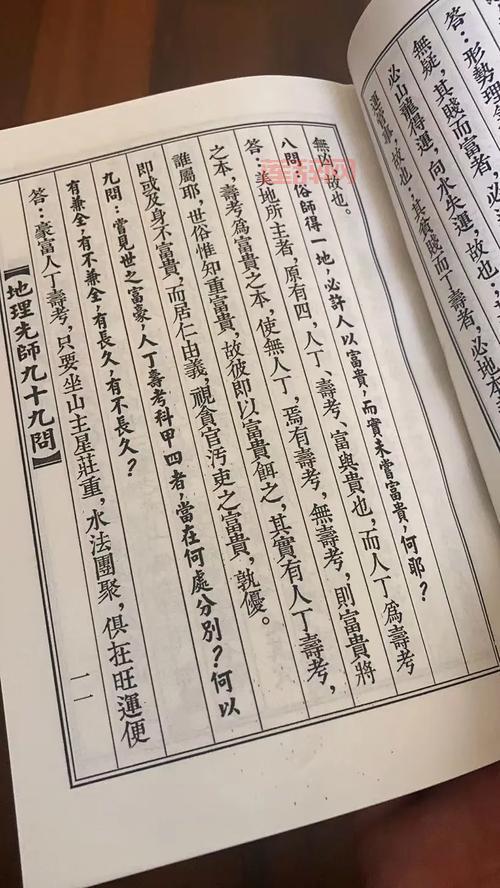 答：形勢理
無疑，其賤而富者，必
必山龍得運，向水失運，故
故也，其貧賤而丁壽者，必地
故也。
八問：俗師得一地，必許人以富貴，而實未嘗富貴，何耶？
答：地所主者，原有四，人丁、壽考、富與貴也，而人丁為壽考
之本，壽考為富貴之本，使無人丁，焉有壽考，無壽考，則富貴將
誰屬耶，世俗惟知重富貴，故彼即以富貴餌之，其實有人丁壽考，
即或及身不富貴，而居仁由義，視貪官汚吏之富貴，孰優。
九問：嘗見世之富豪，人丁壽考科甲四者，當在何處分別？何以
有兼全，有不兼全，有長久，有不長久？
答：豪富人丁壽考，只要坐山主星莊重，水法團聚，俱在旺運便
【地理先師九十九問】
一一